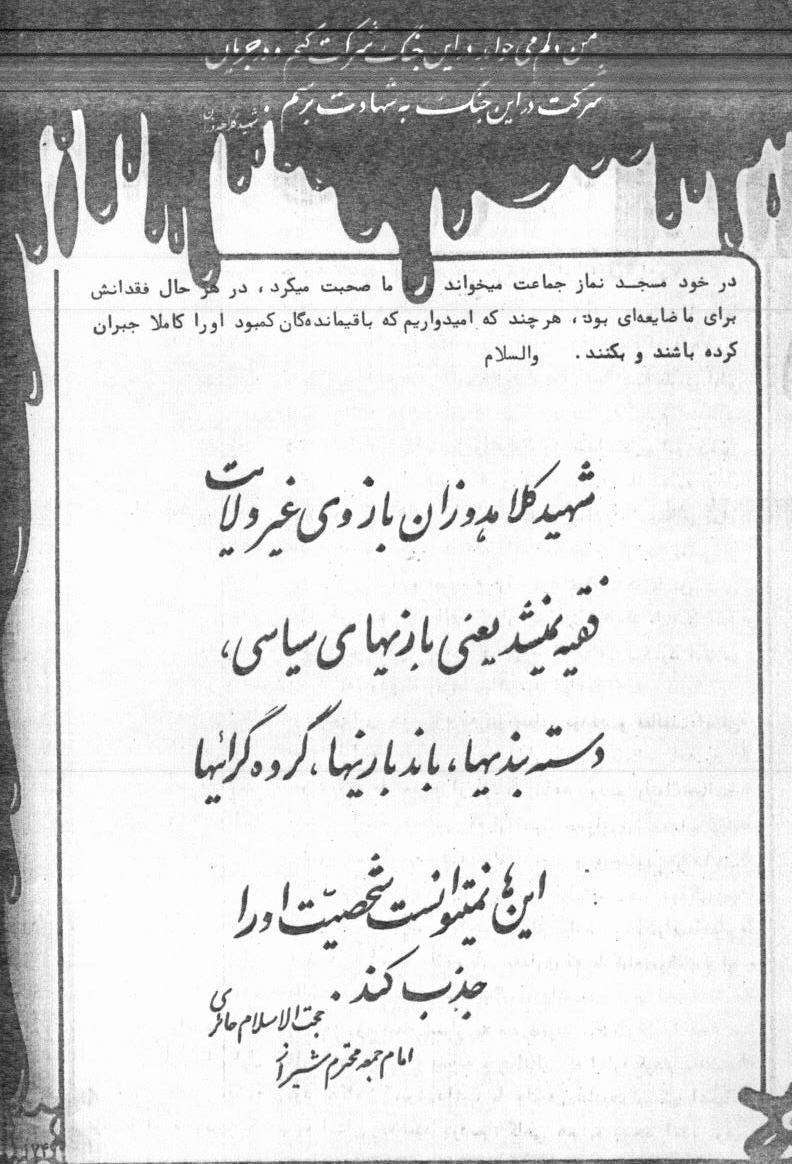 من دلم می‌خواهد در این جنگ شرکت کنم و در جریان
شرکت در این جنگ به شهادت برسم .
شهید کلاهدوزان
در خود مسجد نماز جماعت میخواند ما صحبت میکرد ، در هر حال فقدانش
برای ما ضایعه‌ای بود ، هر چند که امیدواریم که باقیمانده‌گان کمبود او را کاملا جبران
کرده باشند و بکنند . والسلام
شهید کلاهدوزان بازوی غیر ولایت
فقیه نمیشد یعنی بازیهای سیاسی ،
دسته بندیها ، باند بازیها ، گروه گرائیها
این ها نمیتوانست شخصیّت او را
جذب کند .
حجت الاسلام حائری
امام جمعه محترم شیراز